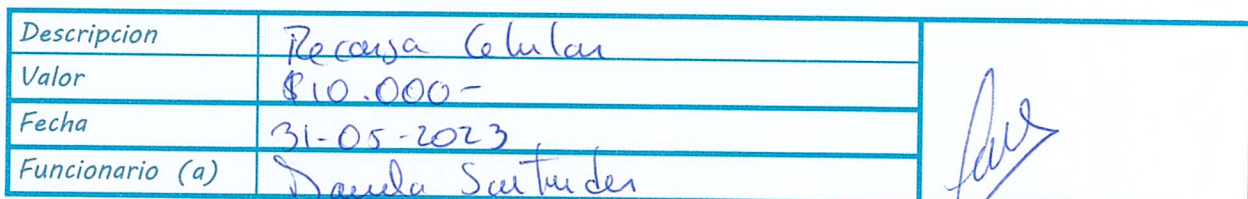 Descripcion Recarga Celular
Valor $10.000-
Fecha 31-05-2023
Funcionario (a) Daniela